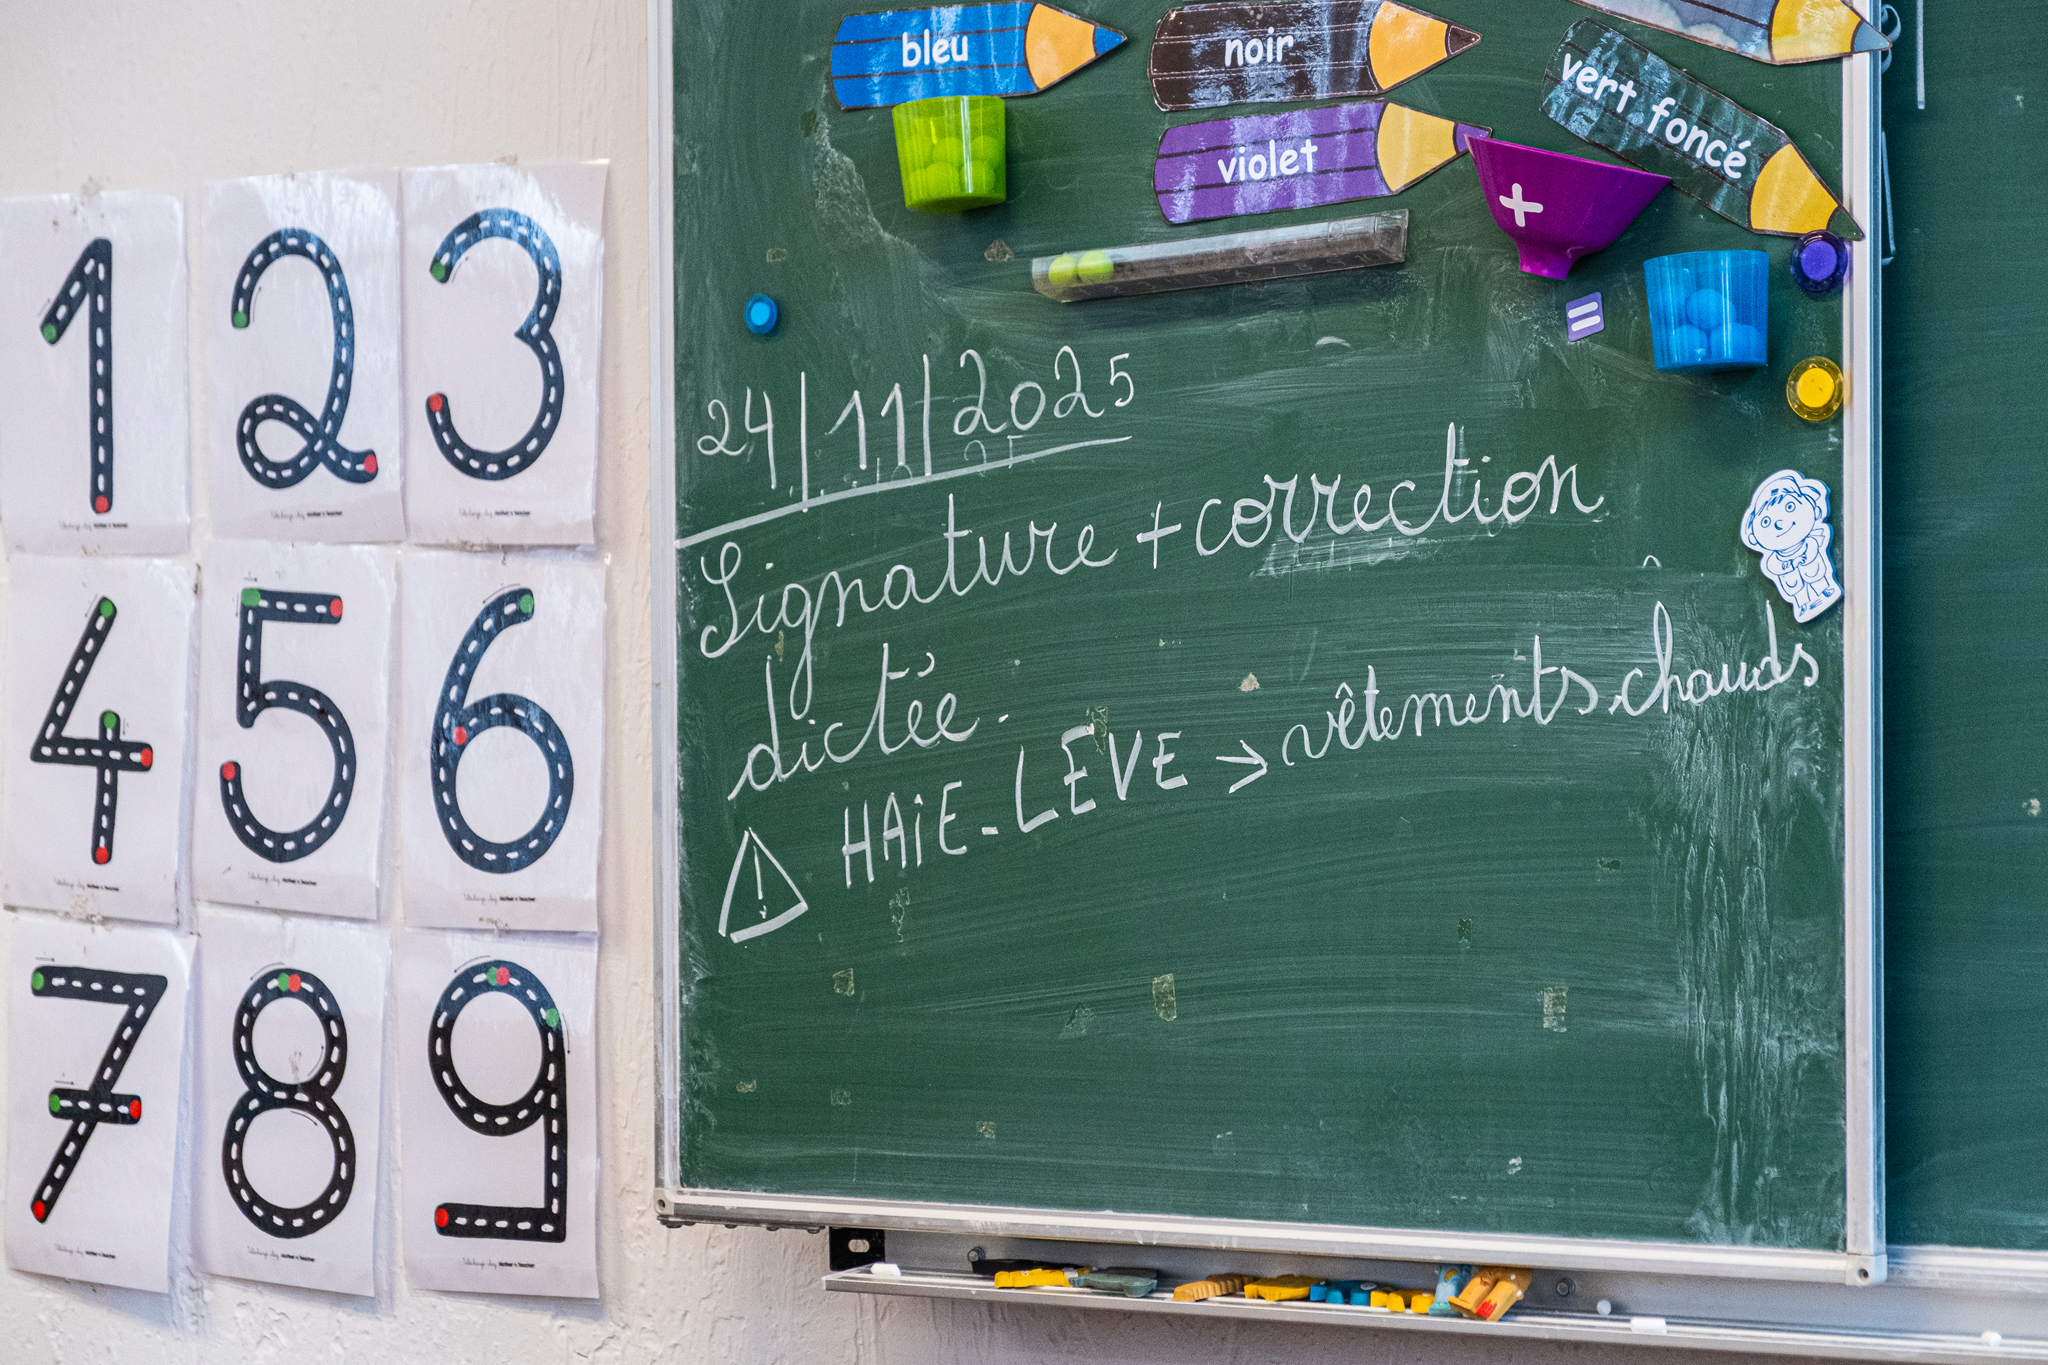 bleu
noir
vert foncé
violet
+
=
24|11|2025
Signature + correction
dictée.
HAiE-LEVE > vêtements chauds
!
1
2
3
4
5
6
7
8
9